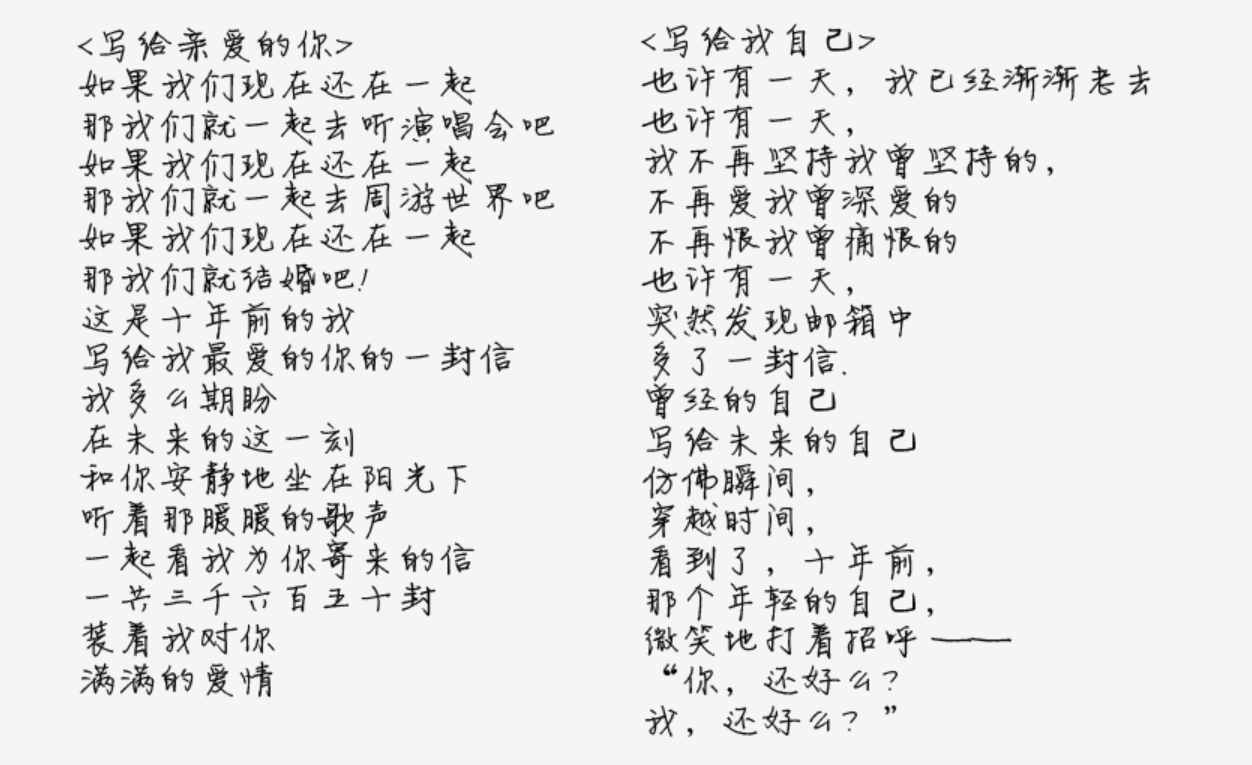 <写给亲爱的你>
如果我们现在还在一起
那我们就一起去听演唱会吧
如果我们现在还在一起
那我们就一起去周游世界吧
如果我们现在还在一起
那我们就结婚吧!
这是十年前的我
写给我最爱的你的一封信
我多么期盼
在未来的这一刻
和你安静地坐在阳光下
听着那暖暖的歌声
一起看我为你寄来的信
一共三千六百五十封
装着我对你
满满的爱情
<写给我自己>
也许有一天，我已经渐渐老去
也许有一天，
我不再坚持我曾坚持的，
不再爱我曾深爱的
不再恨我曾痛恨的
也许有一天，
突然发现邮箱中
多了一封信.
曾经的自己
写给未来的自己
仿佛瞬间，
穿越时间，
看到了，十年前，
那个年轻的自己，
微笑地打着招呼——
“你，还好么?
我，还好么?”